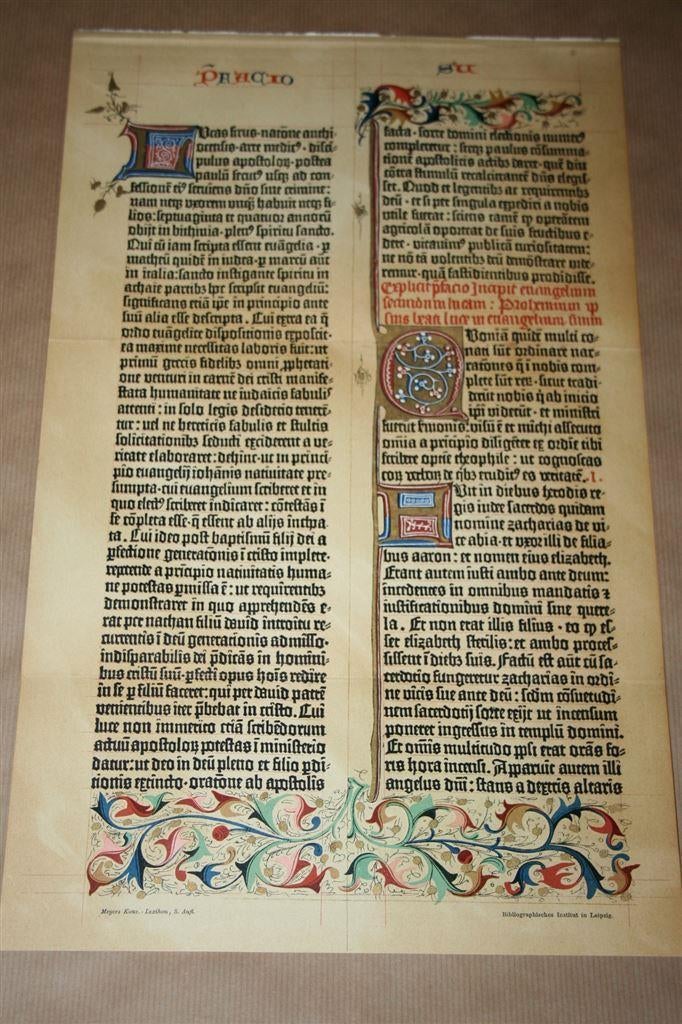 P̄RACIO
SU
Lucas sirus·natōne anthi-
ocensis·arte medicꝰ·disci-
pulus apostoloꝝ·postea
paulū secutꝰ usqꝫ ad con-
fessionē eiꝰ serviens dn̄o sine crimine:
nam neqꝫ uxorem unqꝫ habuit neqꝫ fi-
lios: septuaginta et quatuor annorū
obijt in bithinia·plenꝰ spiritu sancto.
Qui cū iam scripta essent euāgelia·ꝑ
matheū quidē in iudea·ꝑ marcū aūt
in italia: sancto instigante spiritu in
achaie partibꝫ hꝰ scripsit euangeliū:
significans etiā ipe in principio ante
suū alia esse descripta. Cui extra ea q̄
ordo euāgelice dispositionis exposcit·
ea maxime necessitas laboris fuit: ut
primū grecis fidelibꝫ omni ꝓphetati-
one venturi in carnē dei cristi manife-
stata humanitate ne iudaicis fabulis
attenti: in solo legis desiderio tenerēt-
tur: uel ne hereticis fabulis et stultis
solicitationibꝫ seducti exciderent a ve-
ritate elaboraret: dehinc·ut in princi-
pio euangelij iohānis nativitate pre-
sumpta·cui euangelium scriberet et in
quo electꝰ scriberet indicaret: cōtestās ī
se cōpleta esse·q̄ essent ab alijs incho-
ata. Cui ideo post baptismū filij dei a
ꝑfectione generationis ī cristo implete·
repetende a principio nativitatis huma-
ne potestas ꝑmissa ē: ut requirentibꝫ
demonstraret in quo apprehendēs e-
rat per nathan filiū dauid introitu re-
currentis ī deū generationis admisso·
indisparabilis dei ꝑdicās in homini-
bus cristū suū·ꝑfecti opus hoīs redire
in se ꝑ filiū faceret: qui per dauid patrē
venientibus iter ꝑbebat in cristo. Cui
luce non immerito etiā scribēdorum
actuū apostoloꝝ potestas ī ministerio
datur: ut deo in deū pleno et filio ꝓdi-
tionis extincto·oratōne ab apostolis
facta·sorte domini electionis numerꝰ
compleretur: sicqꝫ paulus cōsumma-
tionē apostolicis actibꝫ daret·quē diu
cōtra stimulū recalcitrantē dn̄s elegis-
set. Quod et legentibꝫ ac requirentibꝫ
deū·et si per singula expediri a nobis
utile fuerat: sciens tamē qꝫ operātem
agricolā oporteat de suis fructibus e-
dere·vitavimꝰ publicā curiositatem:
ne nō tā volentibꝫ deū demōstrare vide-
remur·quā fastidientibus prodidisse.
Explicit pfacio Incipit euangelium
secundum lucam: Prohemium ip-
sius beati luce in euangelium suum
Quoniā quidē multi co-
nati sūt ordinare nar-
rationes q̄ ī nobis com-
plete sūt rerꝫ·sicut tradi-
derūt nobis q̄ ab inicio
ipi viderūt·et ministri
fuerūt sermonis: visū ē et michi assecuto
omīa a pricipio diligēter ex ordine tibi
scribere optime theophile: ut cognoscas
eoꝝ verboꝝ de qibꝫ eruditꝰ es veritatē. I.
Fuit in diebus herodis re-
gis iudee sacerdos quidam
nomine zacharias de vi-
ce abia·et uxor illi de filia-
bus aaron: et nomen eius elizabeth.
Erant autem iusti ambo ante deum:
incedentes in omnibus mandatis et
iustificationibus domini sine quere-
la. Et non erat illis filius·eo qꝫ es-
set elizabeth sterilis: et ambo proces-
sissent ī diebꝫ suis. Factū est aūt cū sa-
cerdotio fungeretur zacharias in ordi-
ne vicis sue ante deū: scdm cōsuetudi-
nem sacerdotij sorte exijt ut incensum
poneret ingressus in templū domini.
Et omīs multitudo ppli erat orās fo-
ris hora incensi. Apparuit autem illi
angelus dn̄i: stans a dextris altaris
Meyers Konv.-Lexikon, 5. Aufl.
Bibliographisches Institut in Leipzig.